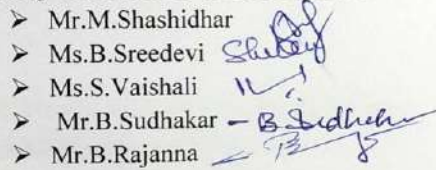 ➢ Mr.M.Shashidhar
➢ Ms.B.Sreedevi
➢ Ms.S.Vaishali
➢ Mr.B.Sudhakar – B.Sudhakar
➢ Mr.B.Rajanna